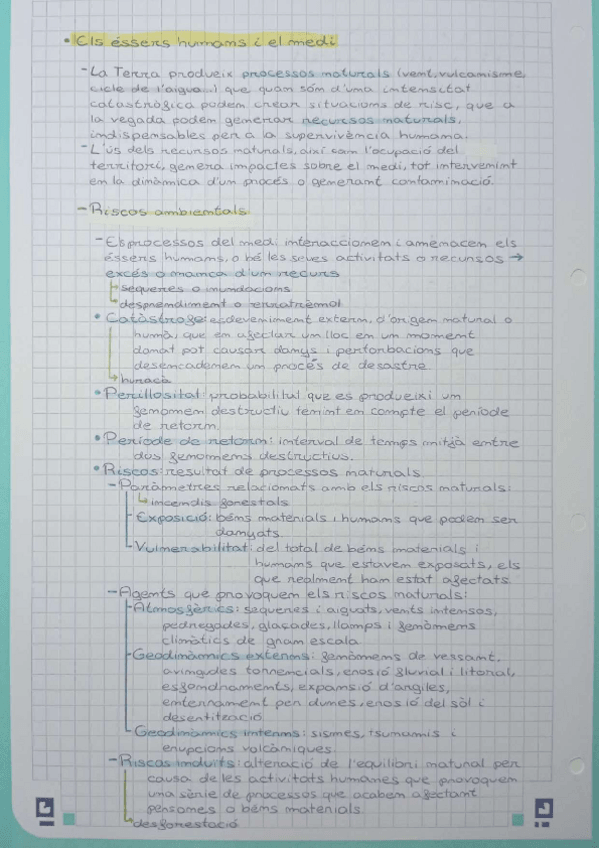 • Els éssers humans i el medi
- La Terra produeix processos naturals (vent, vulcanisme,
cicle de l'aigua...) que quan són d'una intensitat
catastròfica poden crear situacions de risc, que a
la vegada poden generar recursos naturals,
indispensables per a la supervivència humana.
- L'ús dels recursos naturals, així com l'ocupació del
territori, genera impactes sobre el medi, tot intervenint
en la dinàmica d'un procés o generant contaminació.
- Riscos ambientals:
- Els processos del medi interaccionen i amenacen els
éssers humans, o bé les seves activitats o recursos →
excés o manca d'un recurs
↳ sequeres o inundacions
↳ despreniment o terratrèmol
• Catàstrofe: esdeveniment extern, d'origen natural o
humà, que en afectar un lloc en un moment
donat pot causar danys i pertorbacions que
desencadenen un procés de desastre.
↳ huracà
• Perillositat: probabilitat que es produeixi un
fenomen destructiu tenint en compte el període
de retorn.
• Període de retorn: interval de temps mitjà entre
dos fenomens destructius.
• Riscos: resultat de processos naturals
- Paràmetres relacionats amb els riscos naturals:
↳ incendis forestals
- Exposició: béns materials i humans que poden ser
danyats.
- Vulnerabilitat: del total de béns materials i
humans que estaven exposats, els
que realment han estat afectats.
- Agents que provoquen els riscos naturals:
- Atmosfèrics: sequeres i aiguats, vents intensos,
pedregades, glaçades, llamps i fenòmens
climàtics de gran escala
- Geodinàmics externs: fenòmens de vessant,
avingudes torrencials, erosió fluvial i litoral,
esfondraments, expansió d'argiles,
enterrament per dunes, erosió del sòl i
desertització
- Geodinàmics interns: sismes, tsunamis i
erupcions volcàniques
- Riscos induïts: alteració de l'equilibri natural per
causa de les activitats humanes que provoquen
una sèrie de processos que acaben afectant
persones o béns materials
↳ desforestació